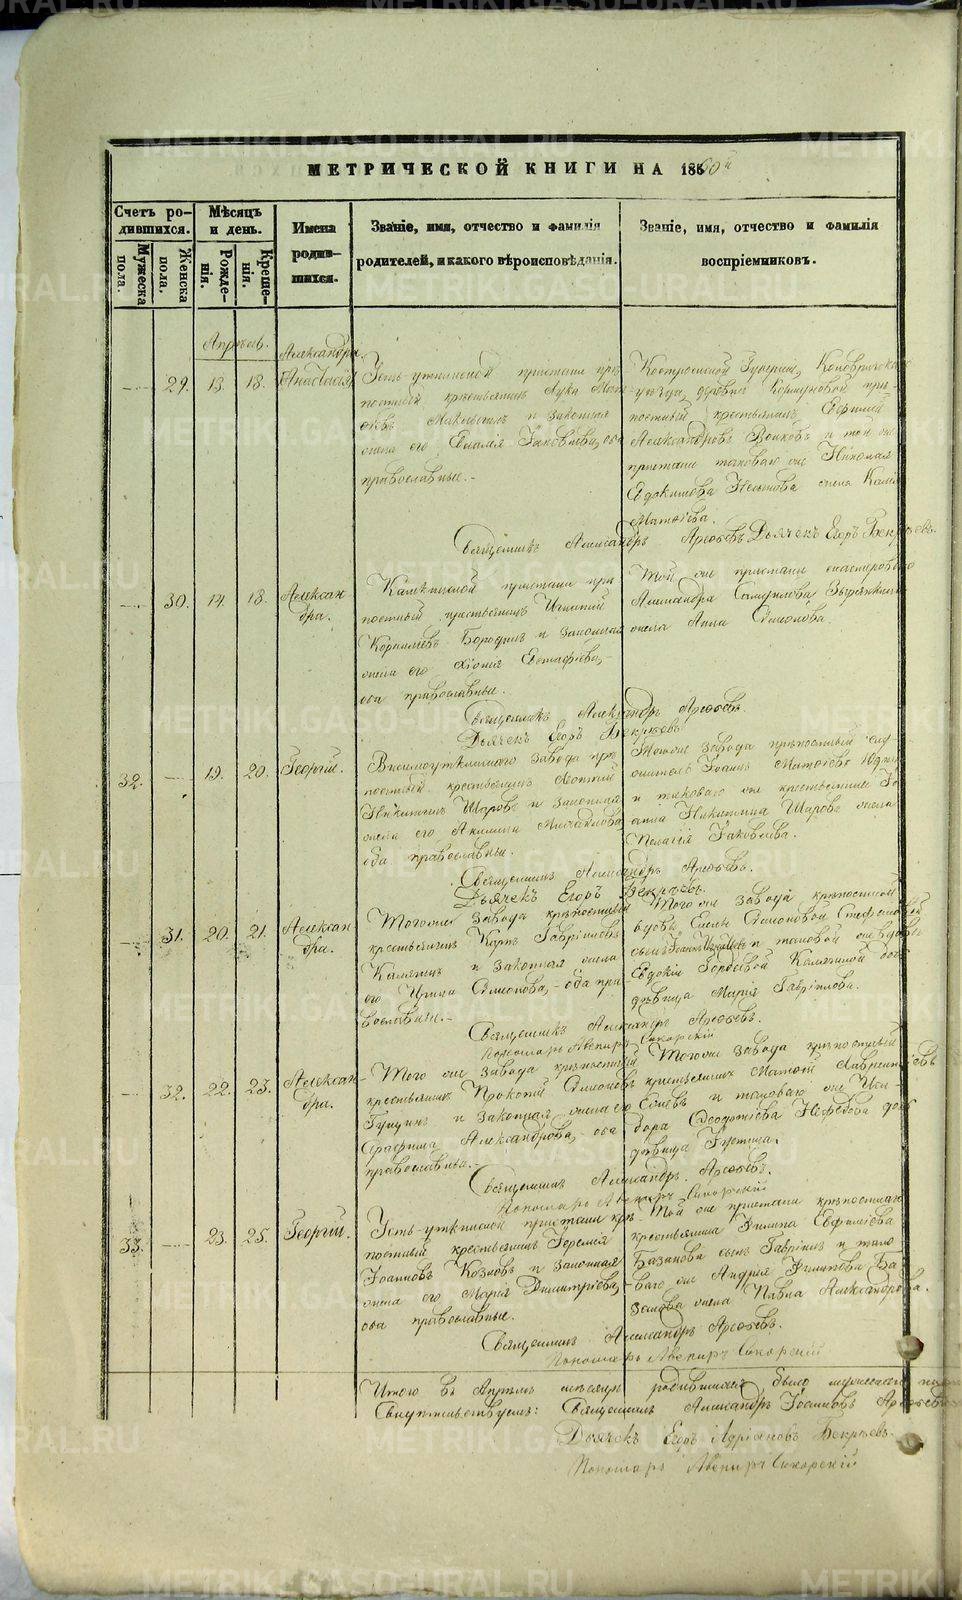 МЕТРИЧЕСКОЙ КНИГИ НА 1860й
Счетъ ро-
дившихся.
Мѣсяцъ
и день.
Имена
родив-
шихся.
Званіе, имя, отчество и фамилія
родителей, и какого вѣроисповѣданія.
Званіе, имя, отчество и фамилія
воспріемниковъ.
Мужеска
пола.
Женска
пола.
Рожде-
нія.
Креще-
нія.
Апрѣль.
29. 13 18.
Александра.
Анастасія
Усть-уткинской пристани крѣ-
постный крестьянинъ Лука
и законная
жена его Іаковлева, оба
православные.
Костромской Губерніи,
уѣзда, деревни крѣ-
постный крестьянинъ Ефимій
Александровъ Волковъ и той же
пристани таковаго же Николая
Евдокимова жена
Матѳіева.
Священникъ Александръ Арефьевъ Дьячекъ Егоръ Бекрѣевъ.
30. 14. 18.
Алексан
дра.
пристани крѣ-
постный крестьянинъ Игнатій
Корниліевъ Бородинъ и законная
жена его Хіонія Евстафіева,
оба православные.
Той же пристани
Александра Самуилова
жена Анна Симонова.
Священникъ Александръ Арефьевъ.
Дьячекъ Егоръ Бекрѣевъ
32. 19. 20.
Георгій.
Висимоуткинскаго завода крѣ-
постный крестьянинъ
Никитинъ Шаровъ и законная
жена его Акилина Михайлова
оба православные.
Того же завода крѣпостный
Іоаннъ Матѳіевъ
и таковаго же крестьянина Іо-
анна Никитина Шарова жена
Пелагія Іаковлева.
Священникъ Александръ Арефьевъ.
Дьячекъ Егоръ Бекрѣевъ.
31. 20. 21.
Алексан
дра.
Того же завода крѣпостный
крестьянинъ Карпъ Гавріиловъ
и законная жена
его Ирина Симонова, оба пра-
вославные.
Того же завода крѣпостной
вдовы Елены Симоновой
сынъ и таковой же вдовы
Евдокіи Гордѣевой дочь
дѣвица Марія Гавріилова.
Священникъ Александръ Арефьевъ.
Пономарь Авениръ Сикорскій
32. 22. 23.
Алексан
дра.
Того же завода крѣпостный
крестьянинъ Прокопій Симоновъ
и законная жена его
Серафима Александрова, оба
православные.
Того же завода крѣпостный
крестьянинъ Матѳій Лаврентіевъ
и таковаго же Иси-
дора Нефедова дочь
дѣвица
Священникъ Александръ Арефьевъ.
Пономарь Авениръ Сикорскій
33. 23. 25.
Георгій.
Усть-уткинской пристани крѣ-
постный крестьянинъ Іеремія
Іоанновъ Козловъ и законная
жена его Марія Димитріева,
оба православные.
Той же пристани крѣпостнаго
крестьянина Филипа Евфиміева
Базанова сынъ Гавріилъ и тако-
ваго же Андрея Филипова Ба-
занова жена Павла Александрова.
Священникъ Александръ Арефьевъ.
Пономарь Авениръ Сикорскій
Итого въ Апрѣлѣ мѣсяцѣ родившихся было мужескаго
Свидѣтельствуемъ: Священникъ Александръ Іоанновъ Арефьевъ
Дьячекъ Егоръ Адріановъ Бекрѣевъ.
Пономарь Авениръ Сикорскій
METRIKI.GASO-URAL.RU